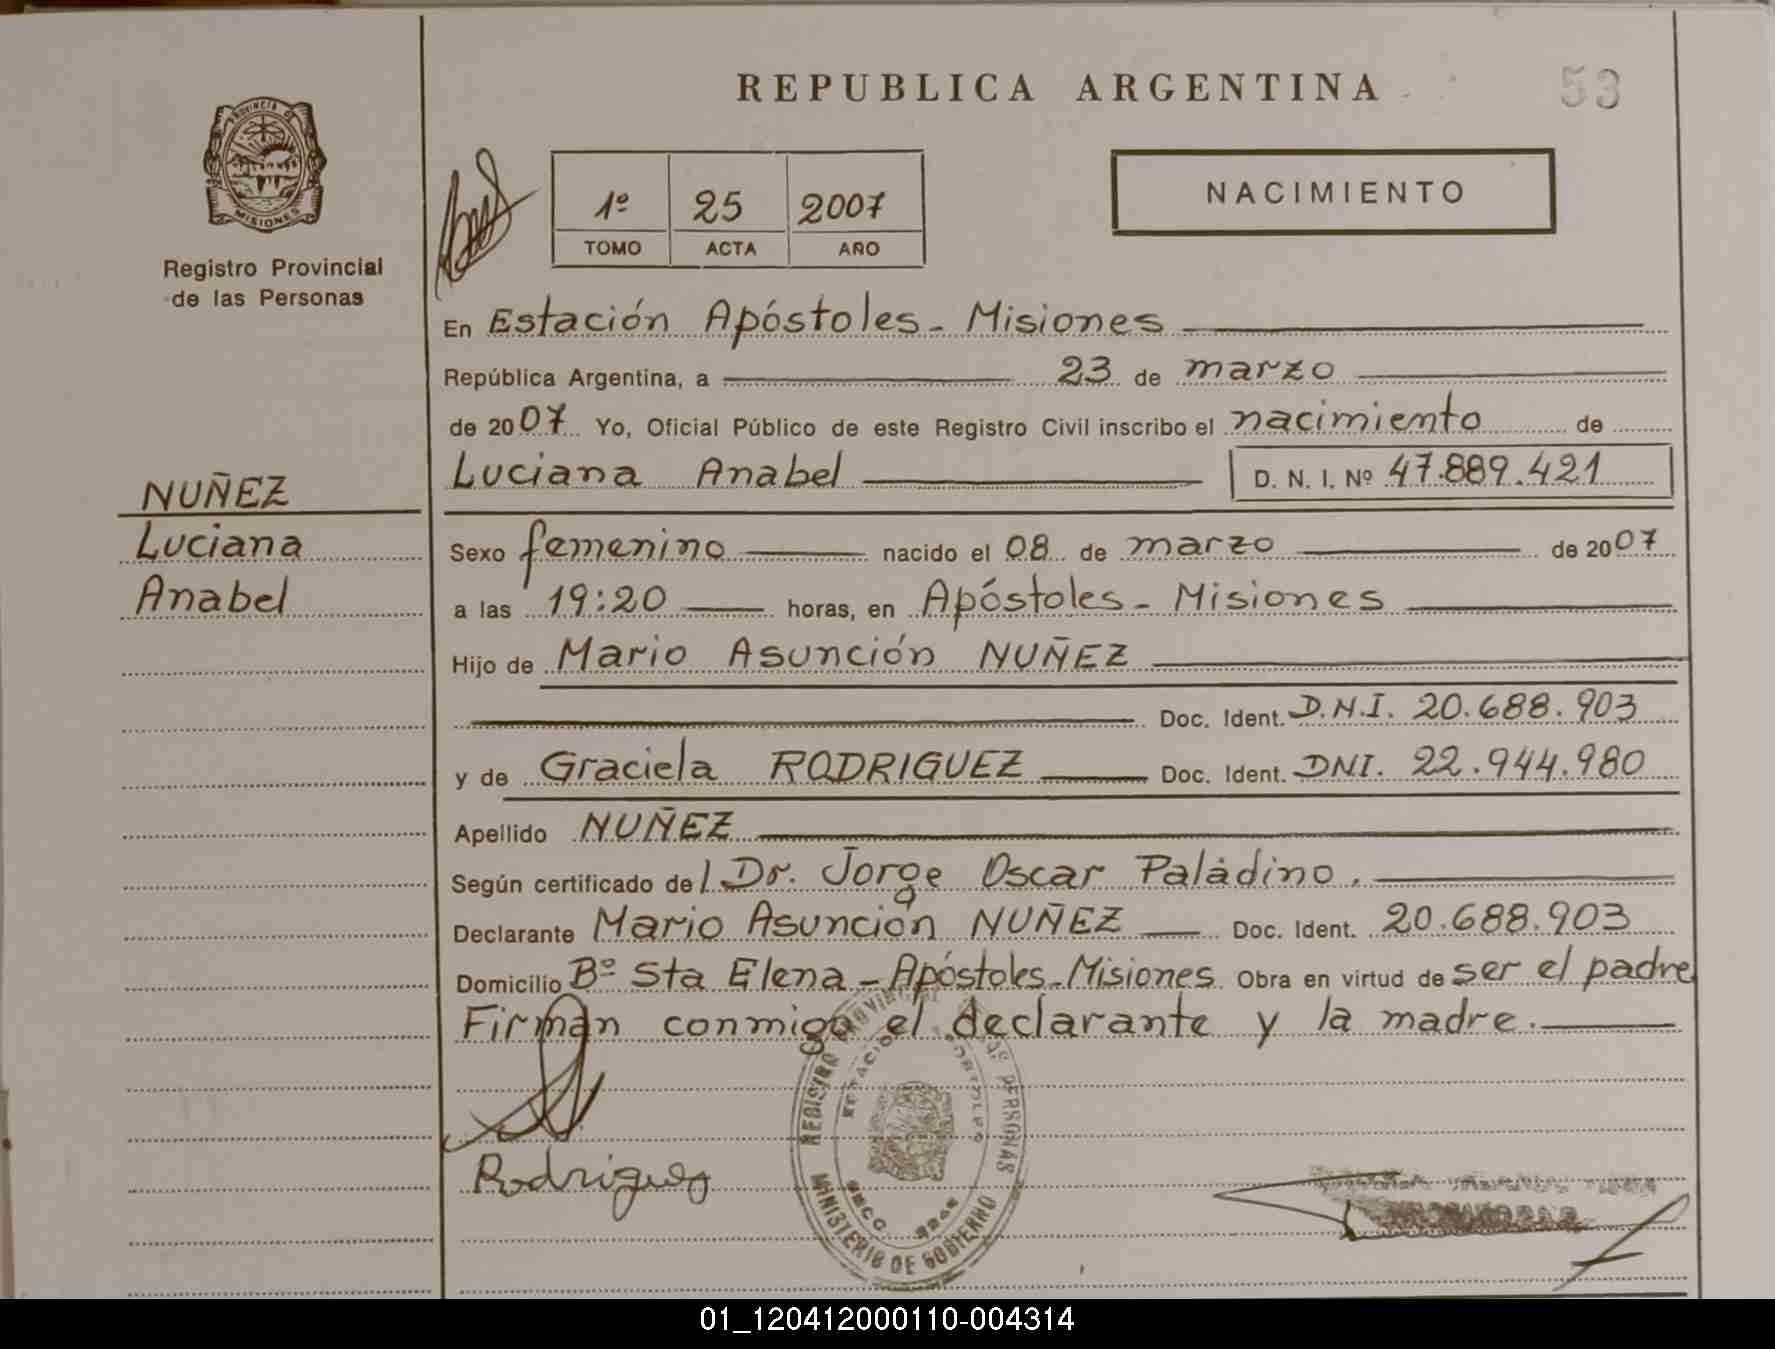 REPUBLICA ARGENTINA
53
PROVINCIA DE
MISIONES
Registro Provincial
de las Personas
1º 25 2007
TOMO ACTA AÑO
NACIMIENTO
En Estación Apóstoles - Misiones
República Argentina, a 23 de marzo
de 2007 Yo, Oficial Público de este Registro Civil inscribo el nacimiento de
Luciana Anabel D. N. I. Nº 47.889.421
NUÑEZ
Luciana
Anabel
Sexo femenino nacido el 08 de marzo de 2007
a las 19:20 horas, en Apóstoles - Misiones
Hijo de Mario Asunción NUÑEZ
Doc. Ident. D.N.I. 20.688.903
y de Graciela RODRIGUEZ Doc. Ident. DNI. 22.944.980
Apellido NUÑEZ
Según certificado del Dr. Jorge Oscar Paladino.
Declarante Mario Asunción NUÑEZ Doc. Ident. 20.688.903
Domicilio Bº Sta Elena - Apóstoles - Misiones Obra en virtud de ser el padre
Firman conmigo el declarante y la madre.
REGISTRO PROVINCIAL DE LAS PERSONAS
MINISTERIO DE GOBIERNO
Rodriguez
01_120412000110-004314